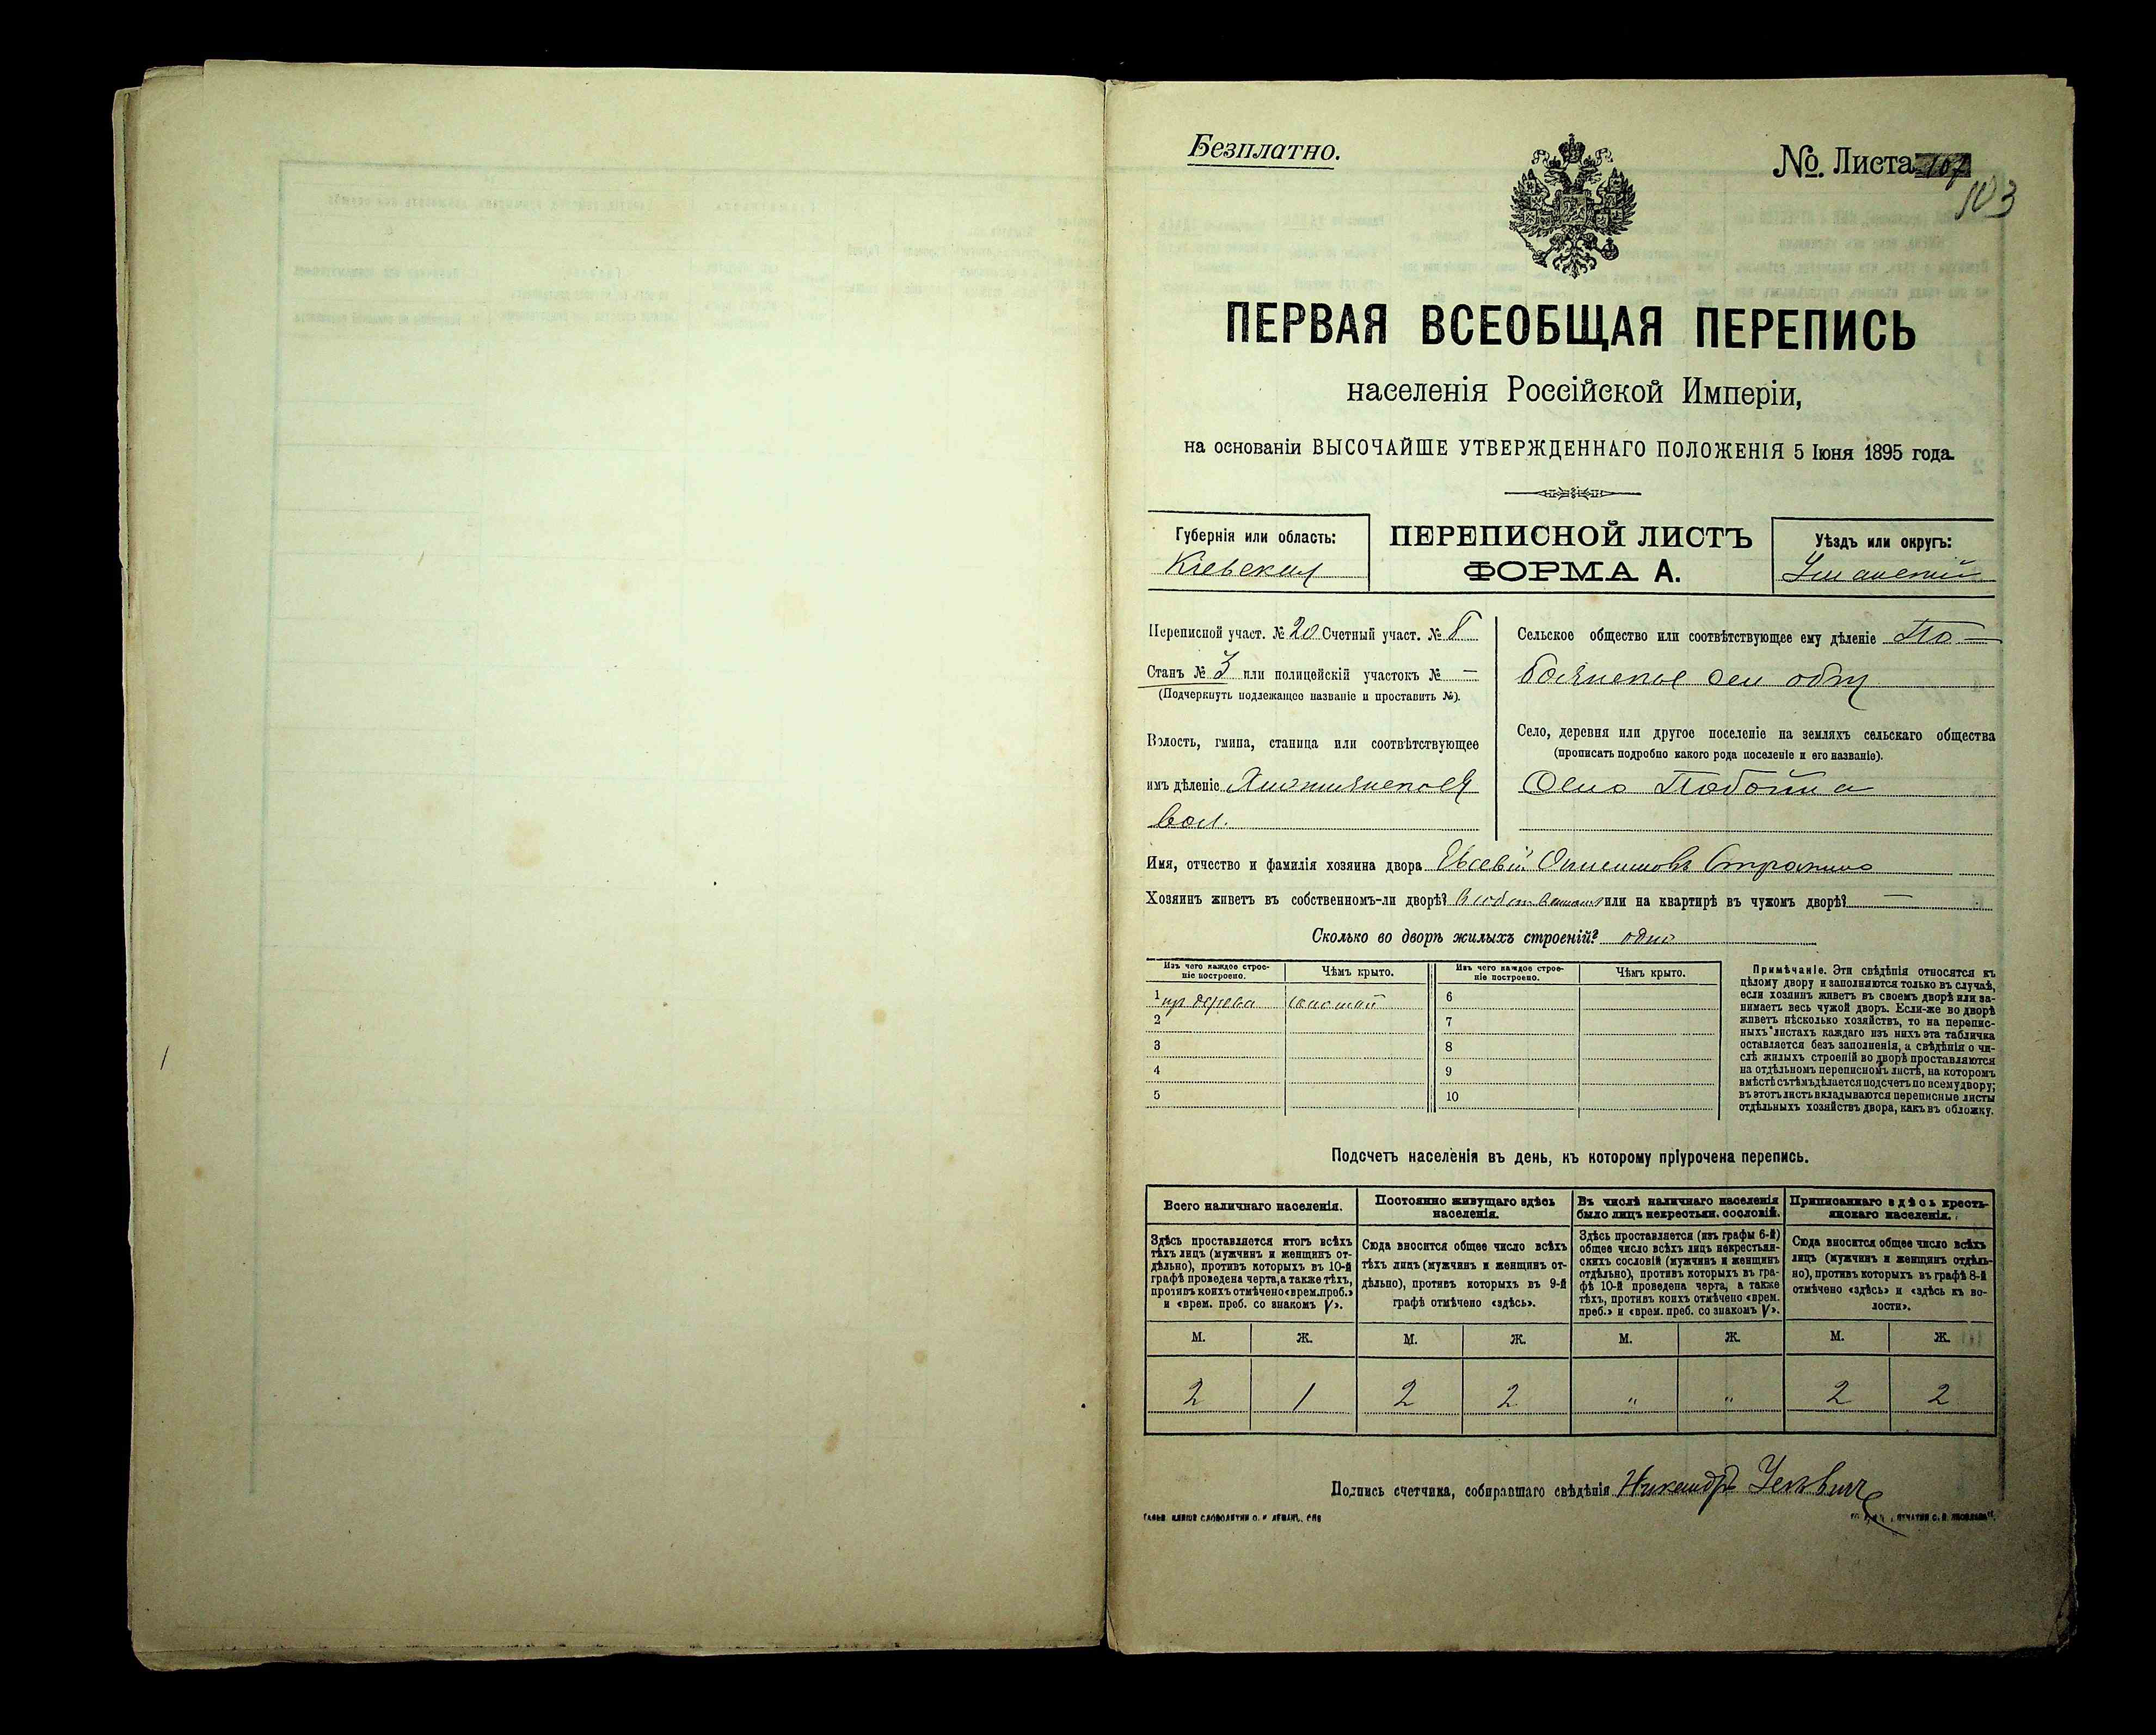 Безплатно.
№ Листа 107
103
ПЕРВАЯ ВСЕОБЩАЯ ПЕРЕПИСЬ
населенія Россійской Имперіи,
на основаніи ВЫСОЧАЙШЕ УТВЕРЖДЕННАГО ПОЛОЖЕНІЯ 5 Іюня 1895 года.
Губернія или область:
Кіевская
ПЕРЕПИСНОЙ ЛИСТЪ
ФОРМА А.
Уѣздъ или округъ:
Уманскій
Переписной участ. № 20 Счетный участ. № 8
Станъ № 3 или полицейскій участокъ № —
(Подчеркнуть подлежащее названіе и проставить №).
Волость, гмина, станица или соотвѣтствующее
имъ дѣленіе
вол.
Сельское общество или соотвѣтствующее ему дѣленіе По-
боянское сел общ
Село, деревня или другое поселеніе на земляхъ сельскаго общества
(прописать подробно какого рода поселеніе и его названіе).
Село Побойна
Имя, отчество и фамилія хозяина двора Евсевій
Хозяинъ живетъ въ собственномъ-ли дворѣ? В собственном или на квартирѣ въ чужомъ дворѣ? —
Сколько во дворѣ жилыхъ строеній? одно
Изъ чего каждое строе-
ніе построено.
Чѣмъ крыто.
Изъ чего каждое строе-
ніе построено.
Чѣмъ крыто.
1 дерева
2
3
4
5
6
7
8
9
10
Примѣчаніе. Эти свѣдѣнія относятся къ
цѣлому двору и заполняются только въ случаѣ,
если хозяинъ живетъ въ своемъ дворѣ или за-
нимаетъ весь чужой дворъ. Если-же во дворѣ
живетъ нѣсколько хозяйствъ, то на перепис-
ныхъ листахъ каждаго изъ нихъ эта табличка
оставляется безъ заполненія, а свѣдѣнія о чи-
слѣ жилыхъ строеній во дворѣ проставляются
на отдѣльномъ переписномъ листѣ, на которомъ
вмѣстѣ съ тѣмъ дѣлается подсчетъ по всему двору;
въ этотъ листъ вкладываются переписные листы
отдѣльныхъ хозяйствъ двора, какъ въ обложку.
Подсчетъ населенія въ день, къ которому пріурочена перепись.
Всего наличнаго населенія.
Постоянно живущаго здѣсь
населенія.
Въ числѣ наличнаго населенія
было лицъ некрестьян. сословій.
Приписаннаго здѣсь кресть-
янскаго населенія.
Здѣсь проставляется итогъ всѣхъ
тѣхъ лицъ (мужчинъ и женщинъ от-
дѣльно), противъ которыхъ въ 10-й
графѣ проведена черта, а также тѣхъ,
противъ коихъ отмѣчено «врем. преб.»
и «врем. преб. со знакомъ V».
Сюда вносится общее число всѣхъ
тѣхъ лицъ (мужчинъ и женщинъ от-
дѣльно), противъ которыхъ въ 9-й
графѣ отмѣчено «здѣсь».
Здѣсь проставляется (изъ графы 6-й)
общее число всѣхъ лицъ некрестьян-
скихъ сословій (мужчинъ и женщинъ
отдѣльно), противъ которыхъ въ гра-
фѣ 10-й проведена черта, а также
тѣхъ, противъ коихъ отмѣчено «врем.
преб.» и «врем. преб. со знакомъ V».
Сюда вносится общее число всѣхъ
лицъ (мужчинъ и женщинъ отдѣль-
но), противъ которыхъ въ графѣ 8-й
отмѣчено «здѣсь» и «здѣсь къ во-
лости».
М. Ж. М. Ж. М. Ж. М. Ж.
2 1 2 2 " " 2 2
Подпись счетчика, собиравшаго свѣдѣнія Никандръ